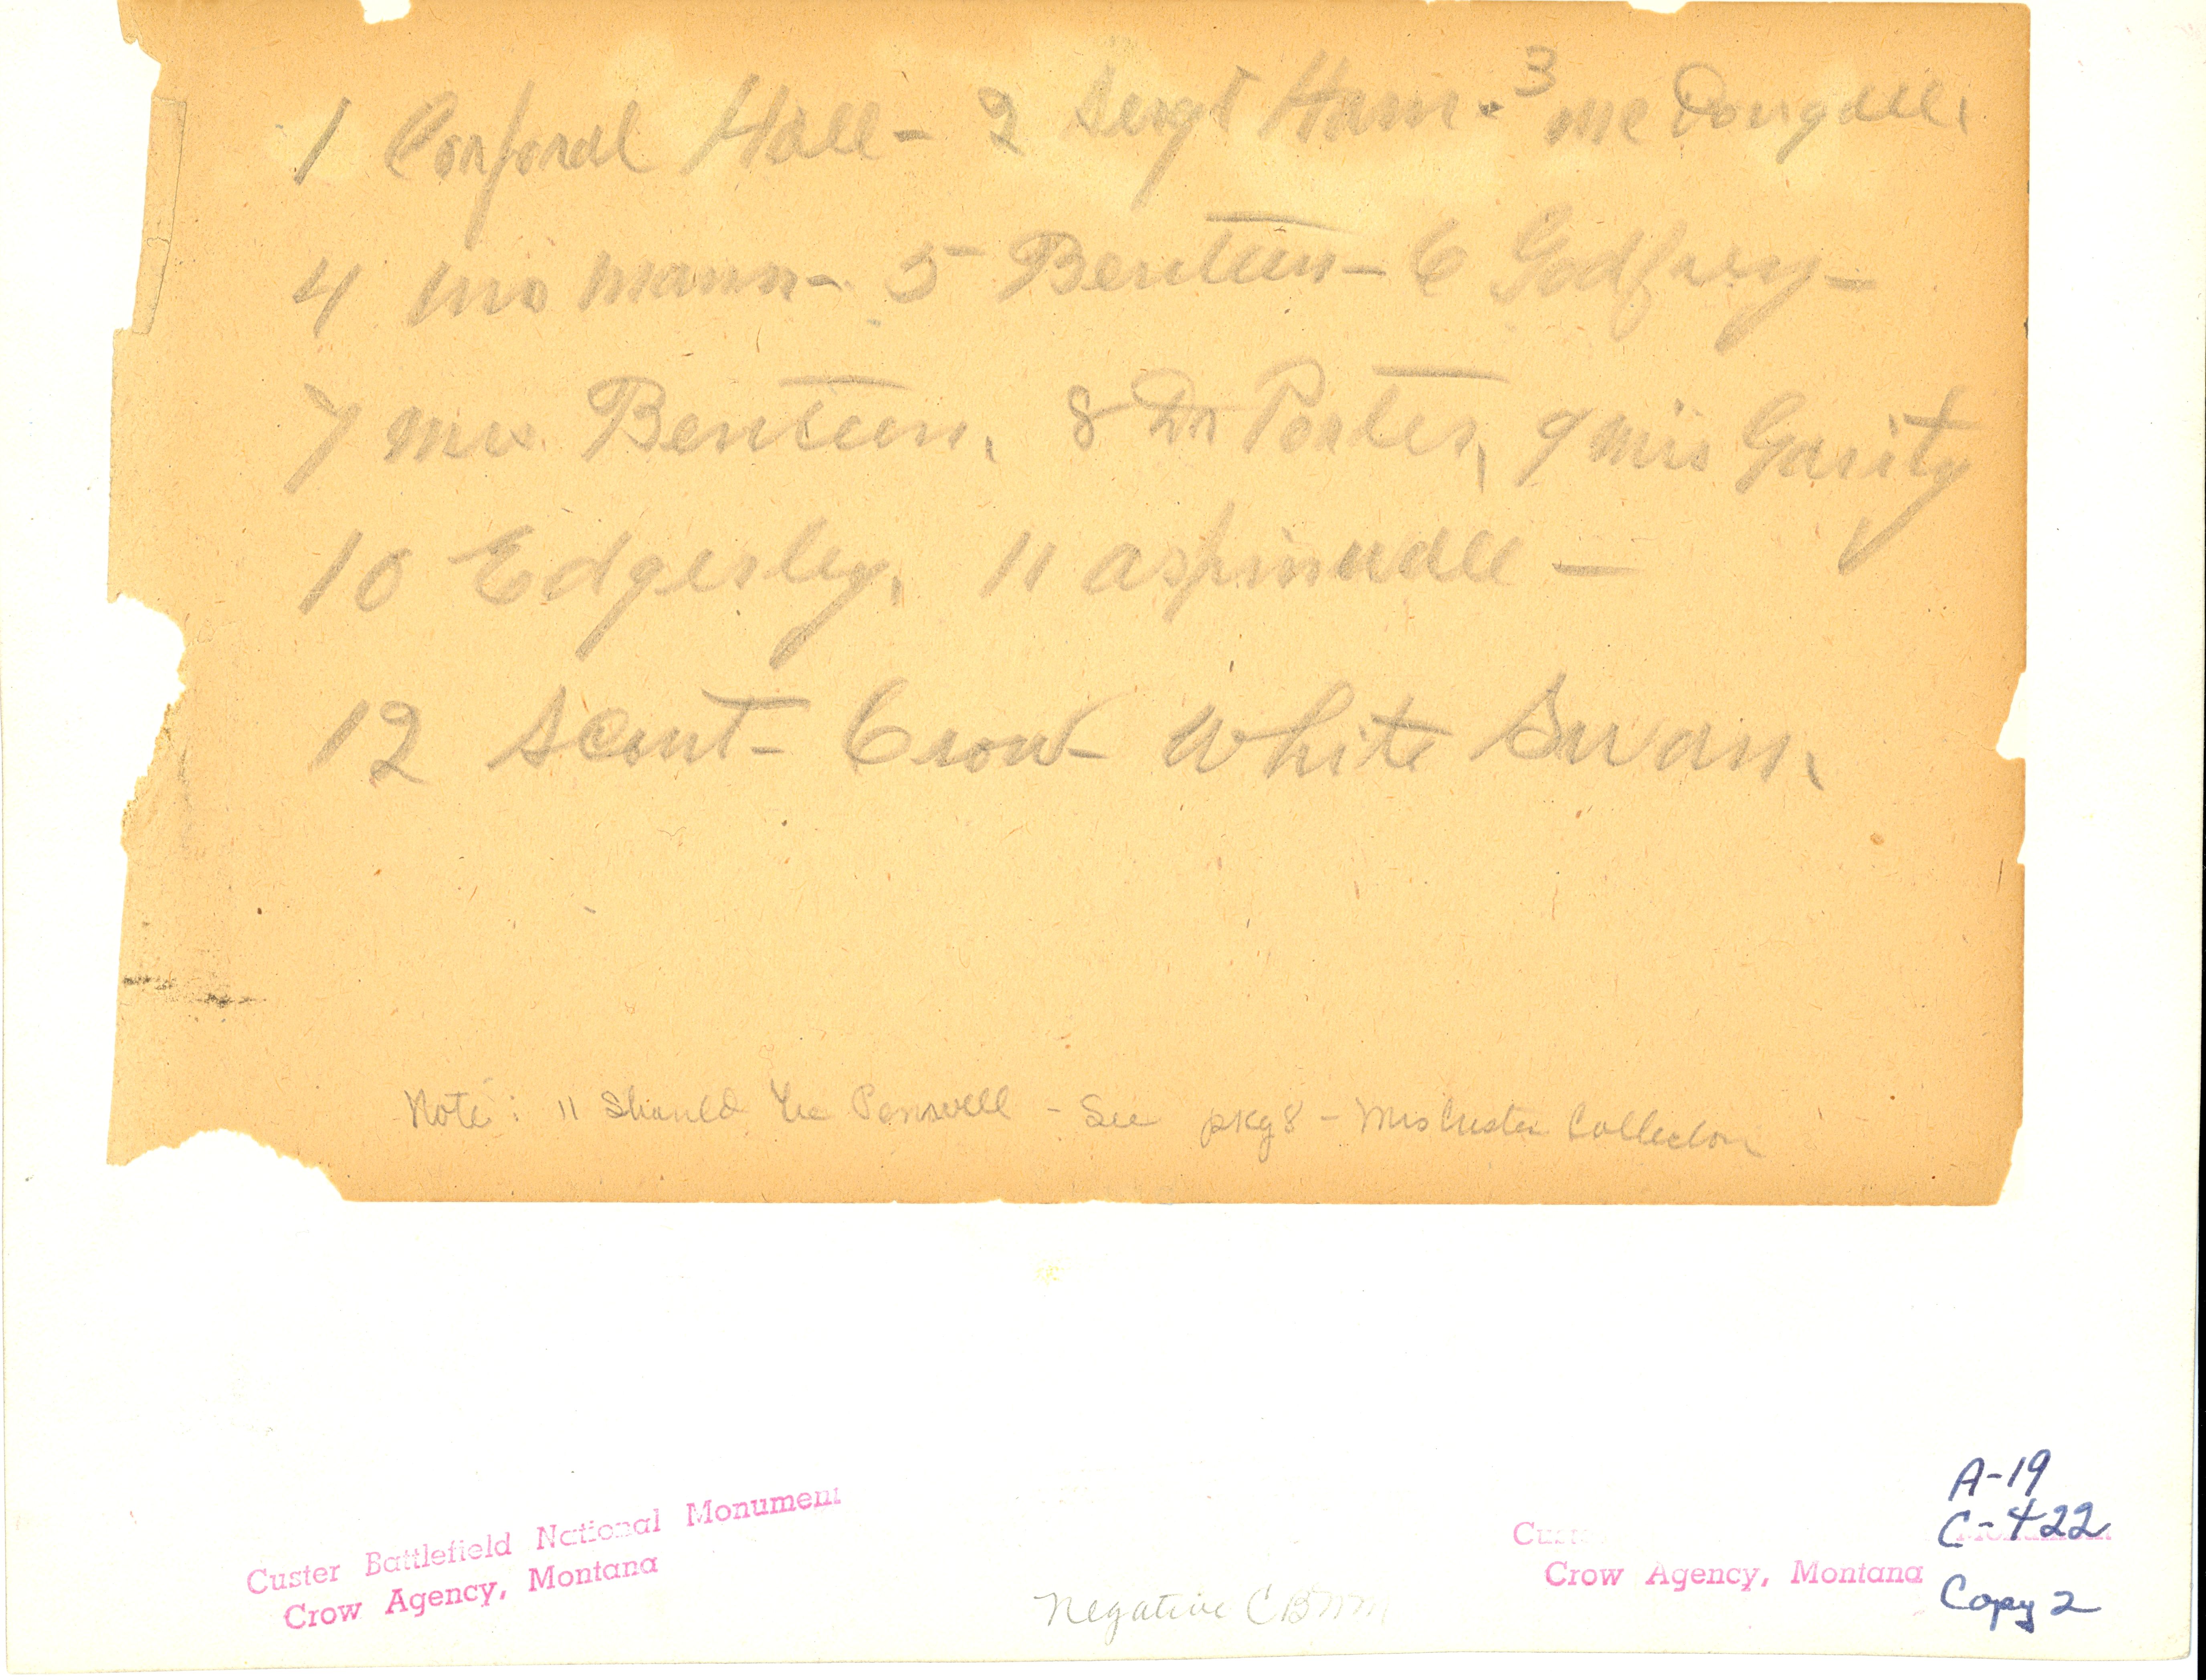 1 Corporal Hall - 2 Sergt Ham. 3 McDougall.
4 Mrs Mann - 5 Benteen - 6 Godfrey -
7 Mrs Benteen, 8 Dr Porter, 9 Mrs Garity
10 Edgerley, 11 aspinwall -
12 Scout - Crow White Swan.
Note: 11 Should be Penwell - See pkg 8 - Mrs Custer Collection
A-19
C-422
Custer Battlefield National Monument
Crow Agency, Montana
Crow Agency, Montana
Copy 2
Negative CBNM